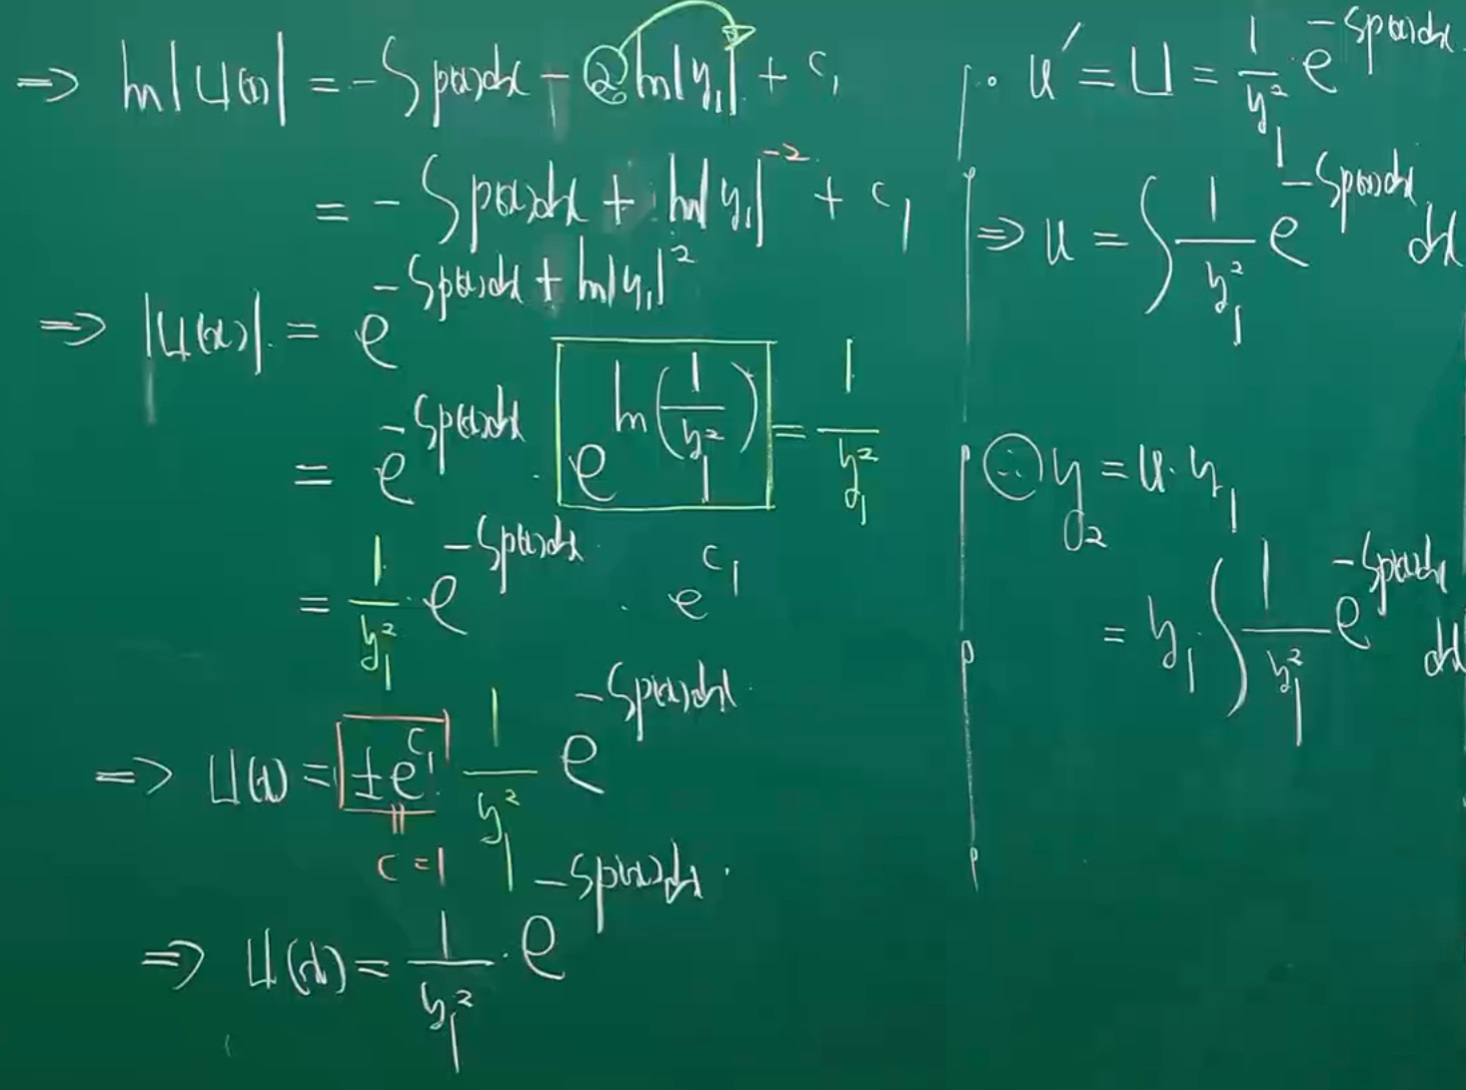 ⇒ ln|U(x)| = -∫p(x)dx - 2 ln|y₁| + c₁
= -∫p(x)dx + ln|y₁|⁻² + c₁
⇒ |U(x)| = e^(-∫p(x)dx + ln|y₁|²)
= e^(-∫p(x)dx) · e^(ln(1/y₁²)) = 1/y₁²
= 1/y₁² · e^(-∫p(x)dx) · e^(c₁)
⇒ U(x) = ±e^(c₁) 1/y₁² e^(-∫p(x)dx)
c = 1
⇒ U(x) = 1/y₁² · e^(-∫p(x)dx)
u′ = U = 1/y₁² · e^(-∫p(x)dx)
⇒ u = ∫ 1/y₁² e^(-∫p(x)dx) dx
∴ y₂ = u · y₁
= y₁ ∫ 1/y₁² e^(-∫p(x)dx) dx